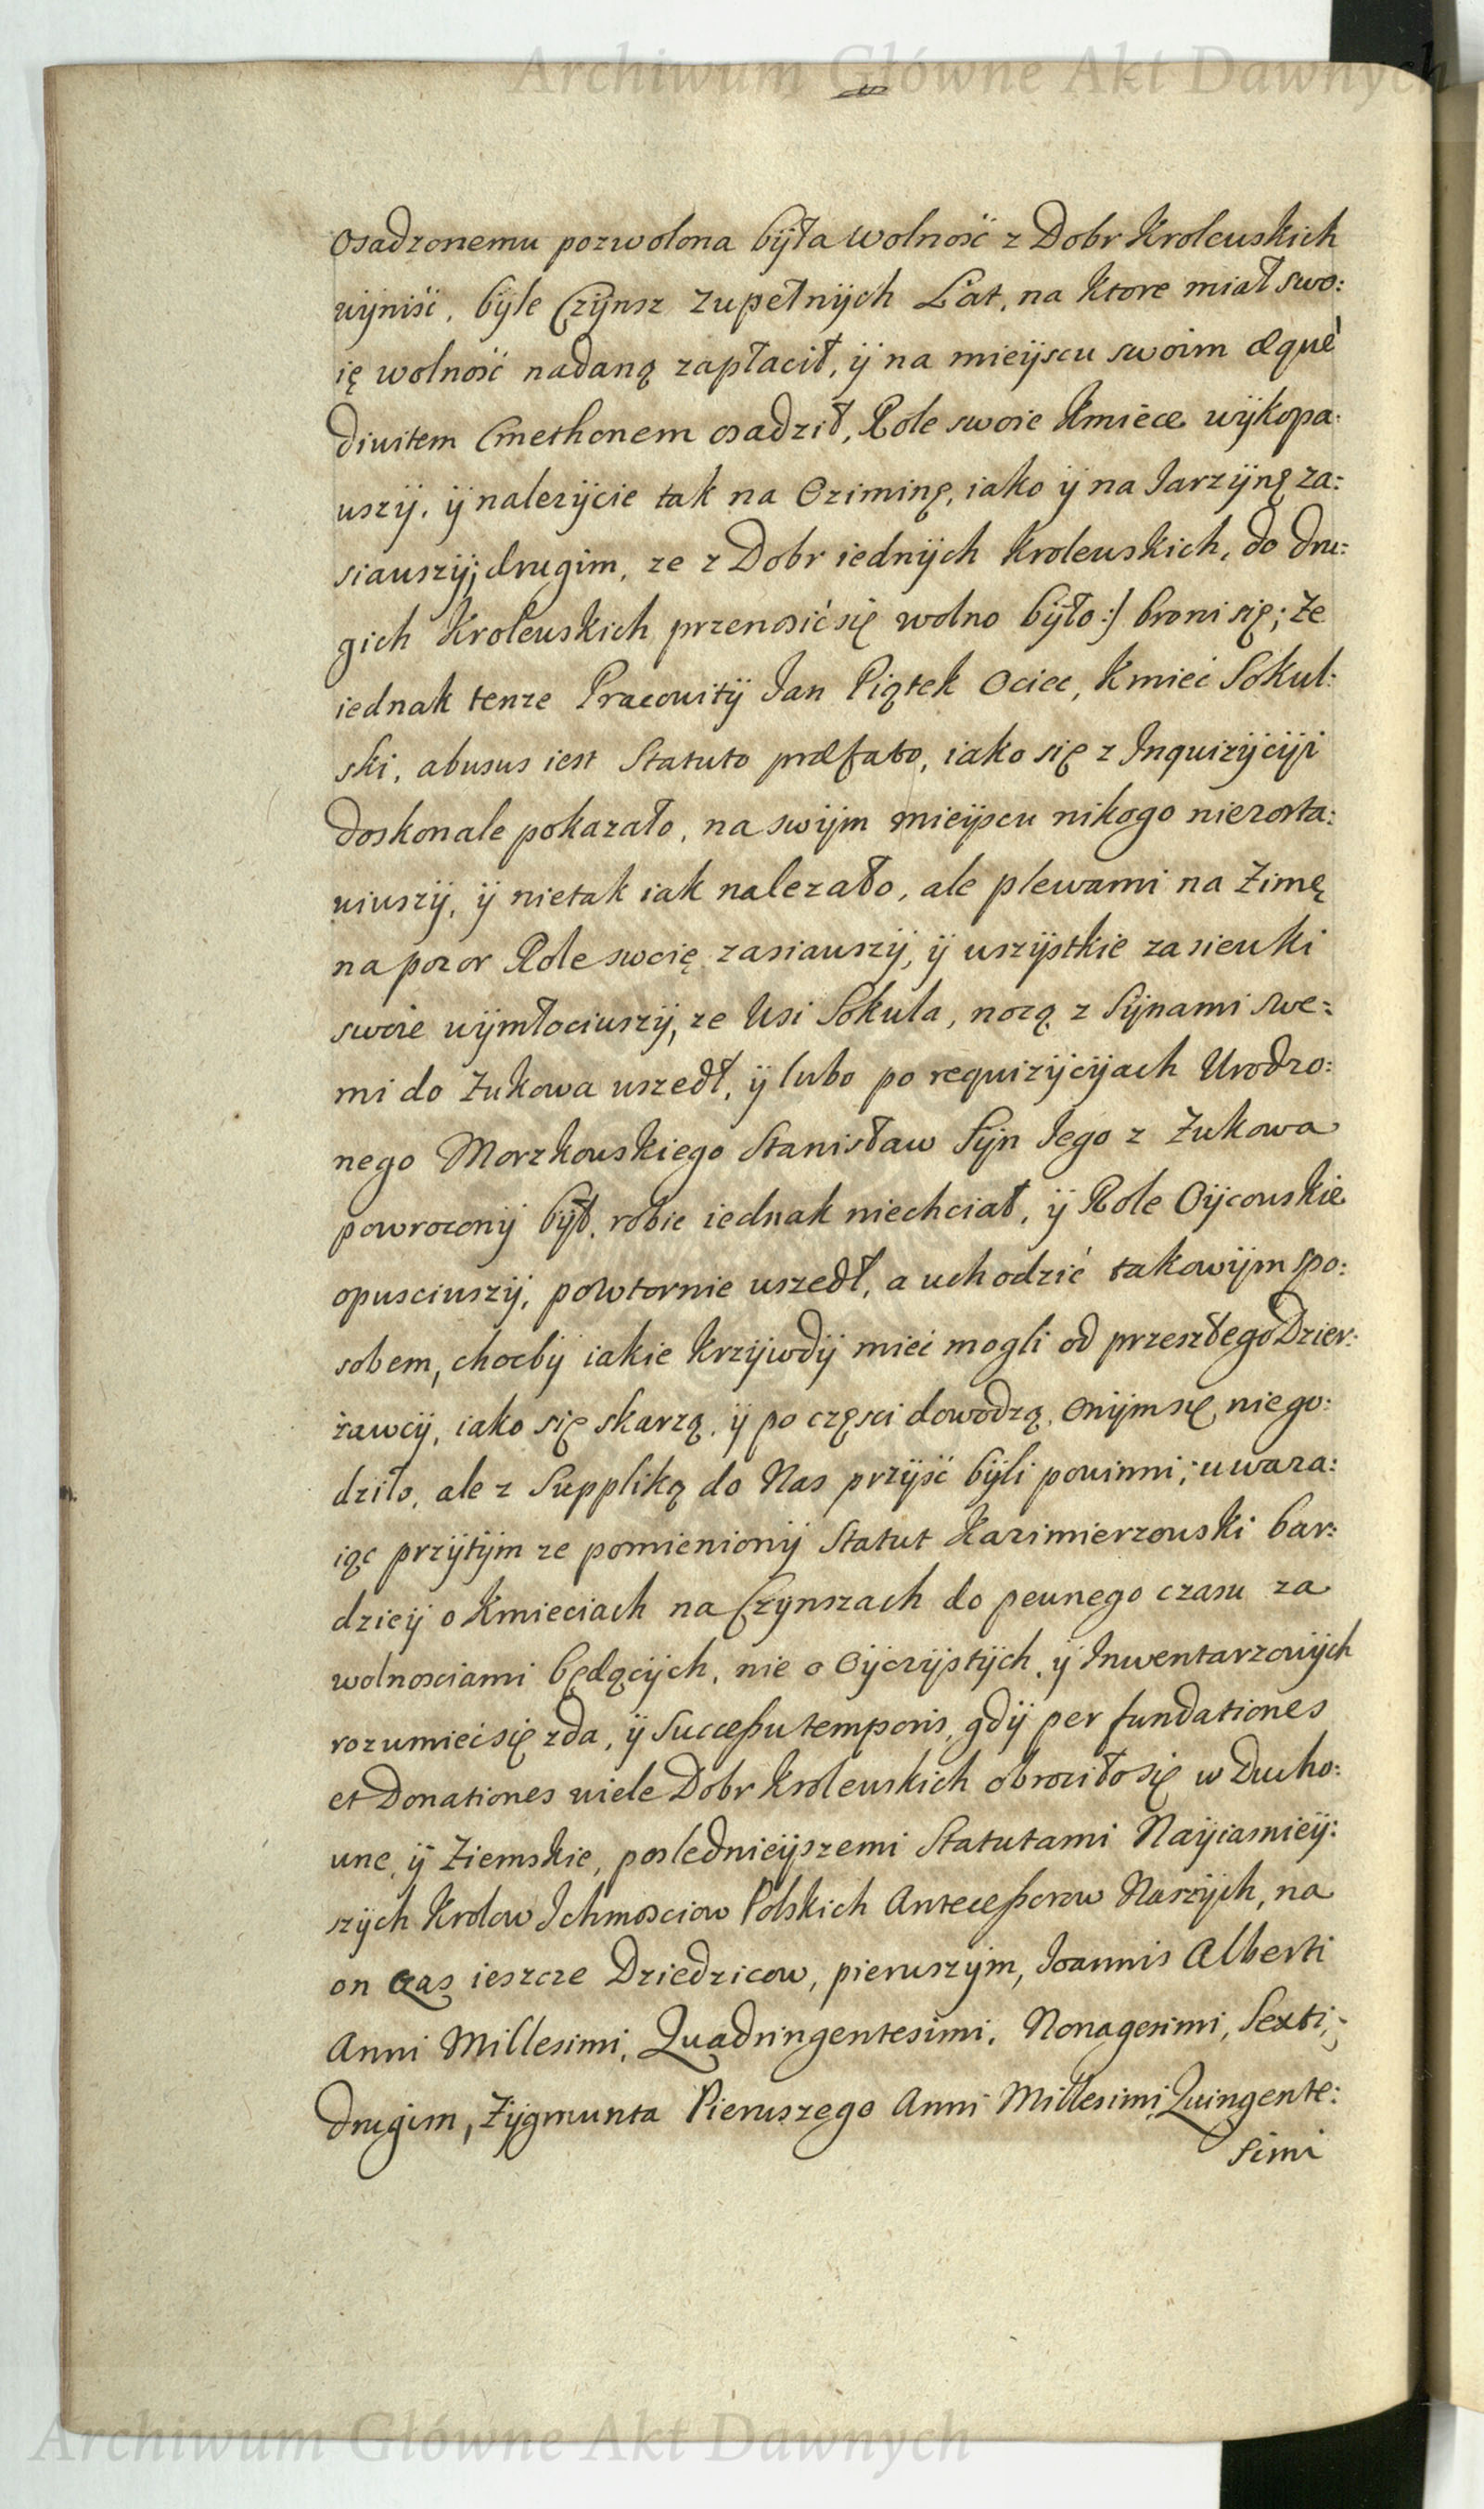 Archiwum Główne Akt Dawnych
osadzonemu pozwolona była wolność z Dobr Krolewskich
wyniść, byle Czynsz zupełnych Lat, na ktore miał swo:
ię wolność nadaną zapłacił, ÿ na mieyscu swoim æque
divitem Cmethonem osadził, Role swoie Kmiece wykopa:
wszy, ÿ nalezycie tak na Oziminę, iako ÿ na Iarzynę za:
siawszy; drugim, ze z Dobr iednych Krolewskich, do dru:
gich Krolewskich przenosić się wolno było:/ broni się; Ze
iednak tenze Pracowity Jan Piątek Ociec, Kmieć Sokul:
ski, abusus iest Statuto præfato, iako się z Inquizycyi
doskonale pokazało, na swym mieyscu nikogo niezosta:
wiwszy, ÿ nietak iak nalezało, ale plewami na Zimę
na pozor Role swoię zasiawszy, ÿ wszystkie zasiewki
swoie wymłociwszy, ze Wsi Sokula, nocą z Synami swe:
mi do Zukowa uszedł, ÿ lubo po requizycyach Urodzo:
nego Morzkowskiego Stanisław Syn Jego z Zukowa
powrocony był, robic iednak niechciał, ÿ Role Oycowskie
opusciwszy, powtornie uszedł, a uchodzić takowym spo:
sobem, chocby iakie krzywdy mieć mogli od przeszłego Dzier:
żawcy, iako się skarzą, ÿ po częsci dowodzą, onym się niego:
dziło, ale z Suppliką do Nas przyść byli powinni; uwaza:
iąc przytym ze pomieniony Statut Kazimierzowski bar:
dziey o Kmieciach na Czynszach do pewnego czasu za
wolnosciami będących, nie o Oyczystych, ÿ Inwentarzowych
rozumieć się zda, ÿ Successu temporis, gdy per fundationes
et Donationes wiele Dobr Krolewskich obrociło się w Ducho:
wne, ÿ Ziemskie, poslednieyszemi Statutami Nayiasniey:
szych Krolow Ichmosciow Polskich Antecessorow Naszych, na
on czas ieszcze Dziedzicow, pierwszym, Joannis Alberti
Anni Millesimi, Quadringentesimi, Nonagesimi, Sexti,
drugim, Zygmunta Pierwszego Anni Millesimi Quingente:
simi
Archiwum Główne Akt Dawnych